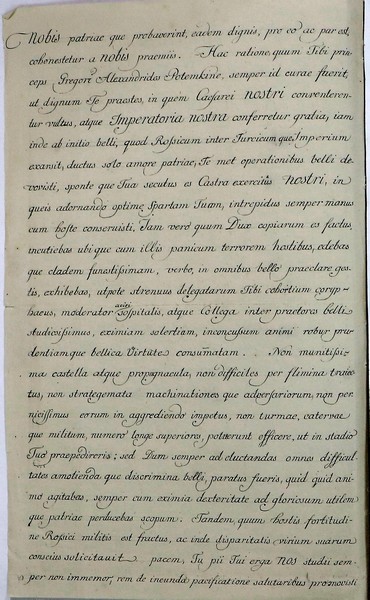 Nobis patriae que probaverint, eadem dignis, pro eo ac par est,
cohonestetur a nobis praemiis. Hac ratione, quum Tibi prin-
ceps Gregori Alexandrides Potemkine, semper id curae fuerit,
ut dignum Te praestes, in quem Caesarei nostri converteren-
tur vultus, atque Imperatoria nostra conferretur gratia; iam
inde ab initio belli, quod Rossicum inter Turcicum que Imperium
exarsit, ductus solo amore patriae, Te met operationibus belli de-
vovisti, sponte que Tua secutus es Castra exercitus nostri, in
queis adornando optime Spartam Tuam, intrepidus semper manus
cum hoste conseruisti. Iam vero quum Dux copiarum es factus,
incutiebas ubi que cum illis panicum terrorem hostibus, edebas
que cladem funestissimam, verbo, in omnibus bello praeclare ges-
tis, exhibebas, utpote strenuus delegatarum Tibi cohortium coryp-
haeus, moderator sospitalis, atque Collega inter praetores belli
studiosissimus, eximiam solertiam, inconcussum animi robur pru-
dentiamque bellica Virtute consumatam. Non munitissi-
ma castella atque propugnacula, non difficiles per flimina traiec-
tus, non strategemata machinationes que adversariorum, non per-
nicissimus eorum in aggrediendo impetus, non turmae, catervae
que militum, numero longe superiores, potuerunt officere, ut in stadio
Tuo praepedireris; sed Dum semper ad eluctandas omnes difficul-
tates amolienda que discrimina belli, paratus fueris, quid quid ani-
mo agitabas, semper cum eximia dexteritate ad gloriosum utilem
que patriae perducebas scopum. Tandem, quum hostis fortitudi-
ne Rossici militis est fractus, ac inde disparitatis virium suarum
conscius solicitauit pacem, Tu pii Tui erga nos studii sem-
per non immemor, rem de ineunda pacificatione salutaribus promovisti